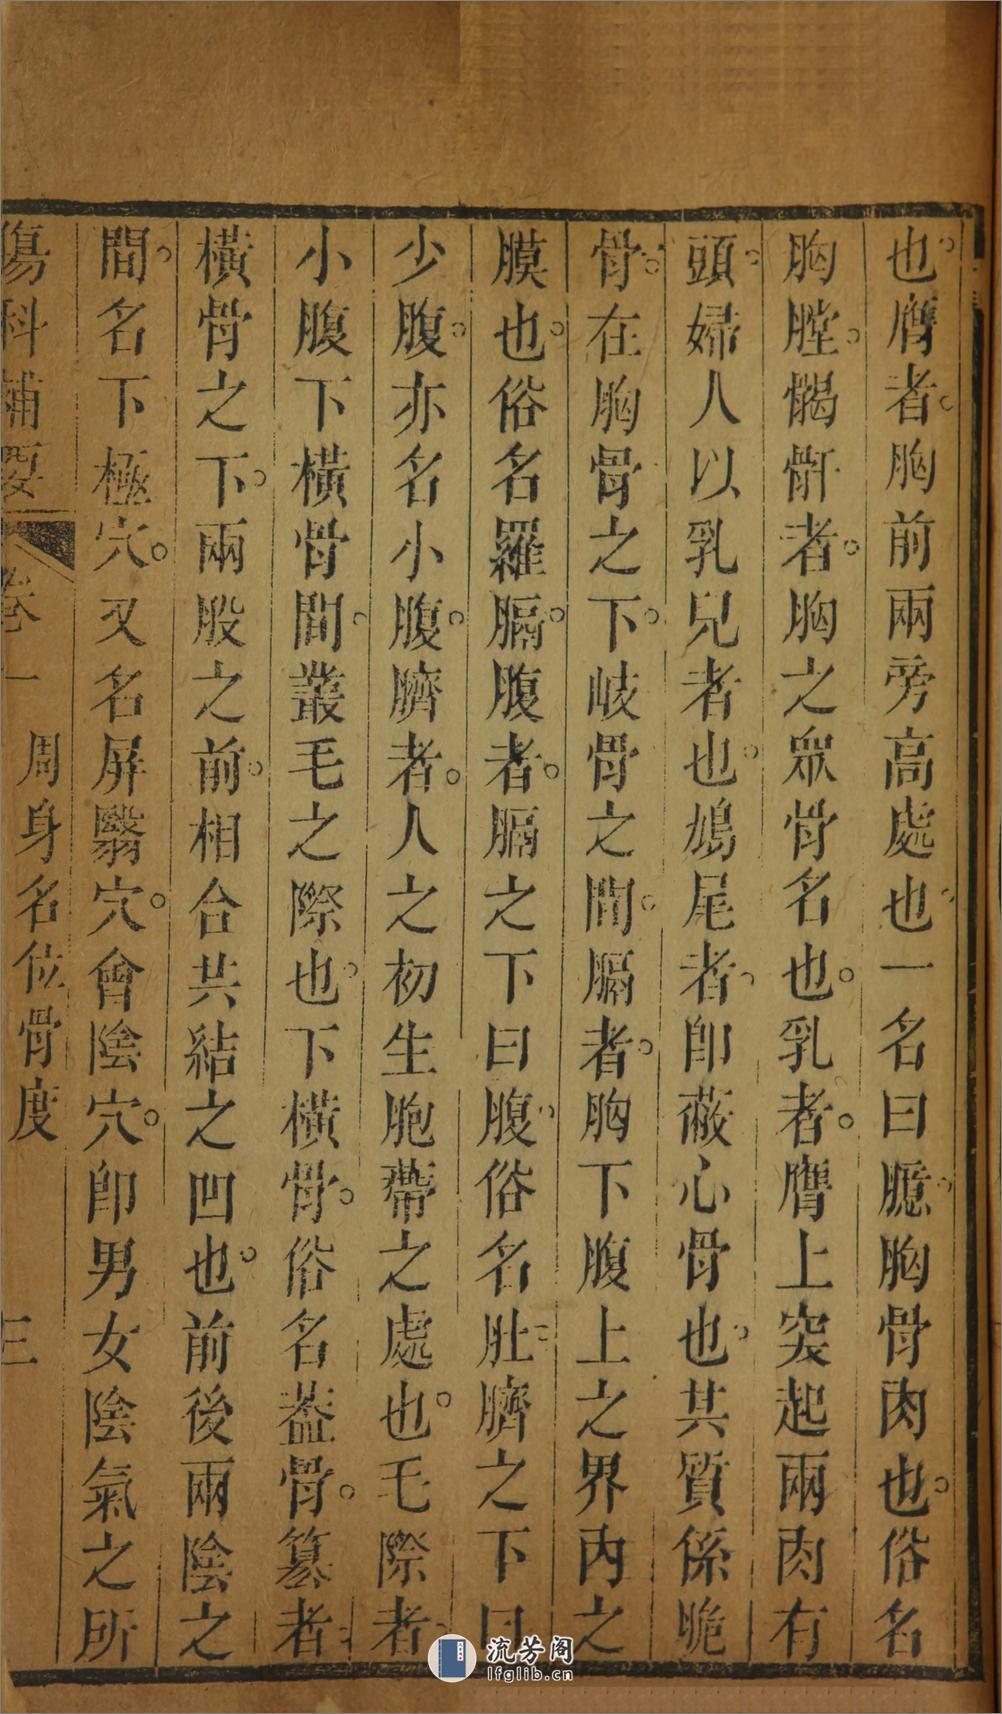 也。膺者。胸前兩旁高處也。一名曰臆。胸骨肉也。俗名
胸膛。髃骬者。胸之眾骨名也。乳者。膺上突起兩肉有
頭。婦人以乳兒者也。鳩尾者。卽蔽心骨也。其質係脆
骨。在胸骨之下。岐骨之間。膈者。胸下腹上之界內之
膜也。俗名羅膈。腹者。膈之下曰腹。俗名肚。臍之下曰
少腹。亦名小腹。臍者。人之初生胞帶之處也。毛際者。
小腹下橫骨間。叢毛之際也。下橫骨。俗名葢骨。篡者。
橫骨之下。兩股之前。相合共結之凹也。前後兩陰之
間。名下極穴。又名屏翳穴。會陰穴。卽男女陰氣之所
傷科補要 卷一 周身名位骨度 三
流芳阁
lfglib.cn